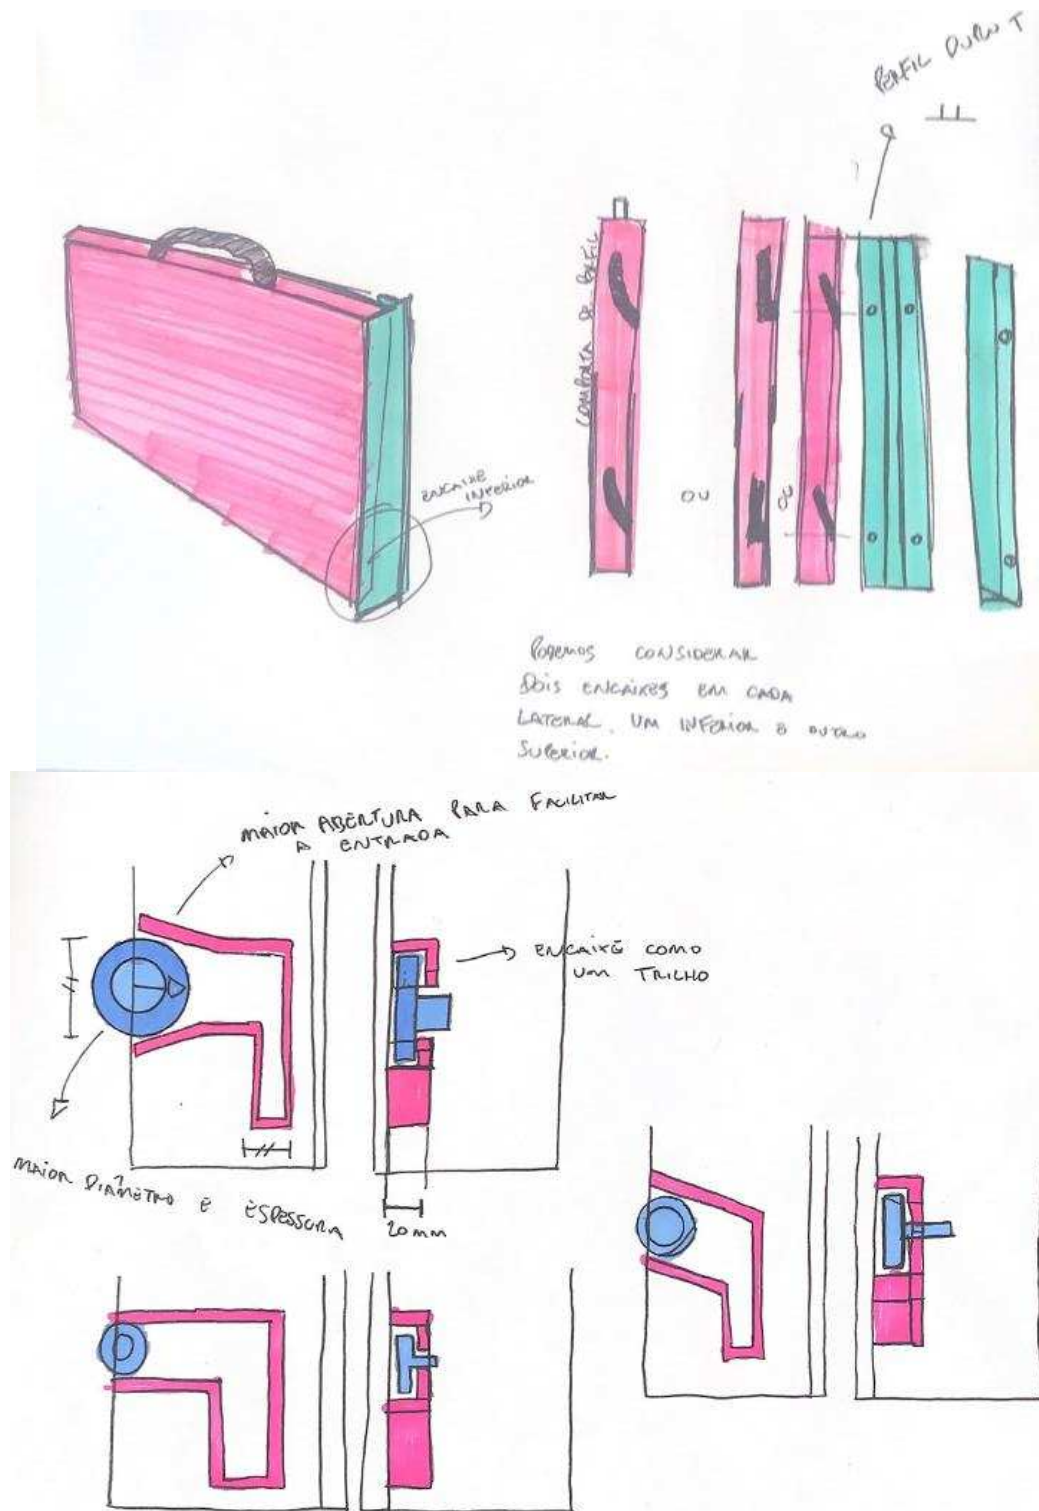 PERFIL DUPLO T
COMPORTA DE PERFIL
ENCAIXE
INFERIOR
OU
OU
PODEMOS CONSIDERAR
DOIS ENCAIXES EM CADA
LATERAL. UM INFERIOR E OUTRO
SUPERIOR.
MAIOR ABERTURA PARA FACILITAR
A ENTRADA
ENCAIXE COMO
UM TRILHO
MAIOR DIÂMETRO E ESPESSURA
20mm